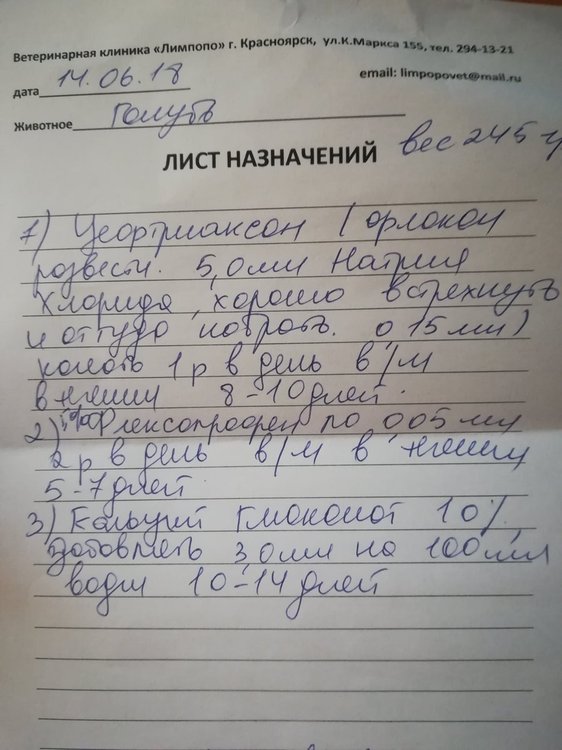 Ветеринарная клиника «Лимпопо» г. Красноярск, ул.К.Маркса 155, тел. 294-13-21
email: limpopovet@mail.ru
дата 14.06.18
Животное Голубь
ЛИСТ НАЗНАЧЕНИЙ вес 245 г
1) Цефтриаксон (флакон
развести 5,0 мл Натрия
Хлорида, хорошо встряхнуть
и оттуда набрать 0,15 мл)
колоть 1 р в день в/м
в мышцу 8-10 дней.
2) Флексопрофен по 0,05 мл
2 р в день в/м в мышцу
5-7 дней
3) Кальций глюконат 10%
добавлять 3,0 мл на 100 мл
воды 10-14 дней